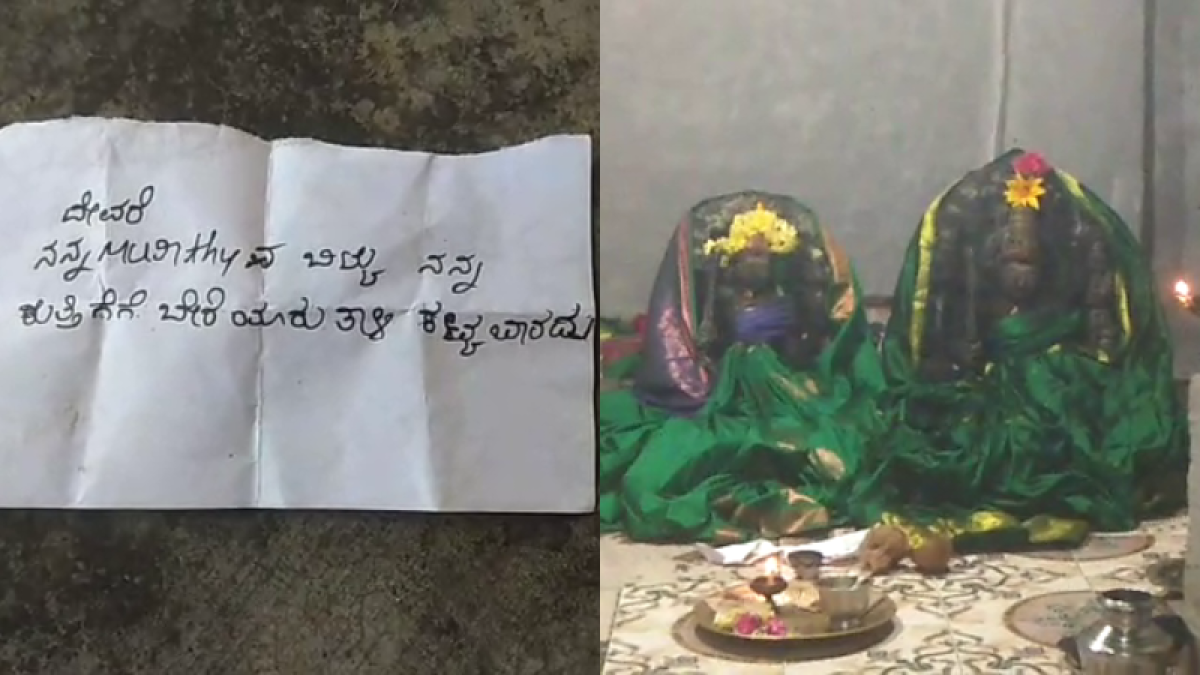 ದೇವರೆ
ನನ್ನ Murithy ನ ಬಿಟ್ಟು ನನ್ನ
ಕುತ್ತಿಗೆಗೆ ಬೇರೆ ಯಾರು ತಾಳಿ ಕಟ್ಟಬಾರದು